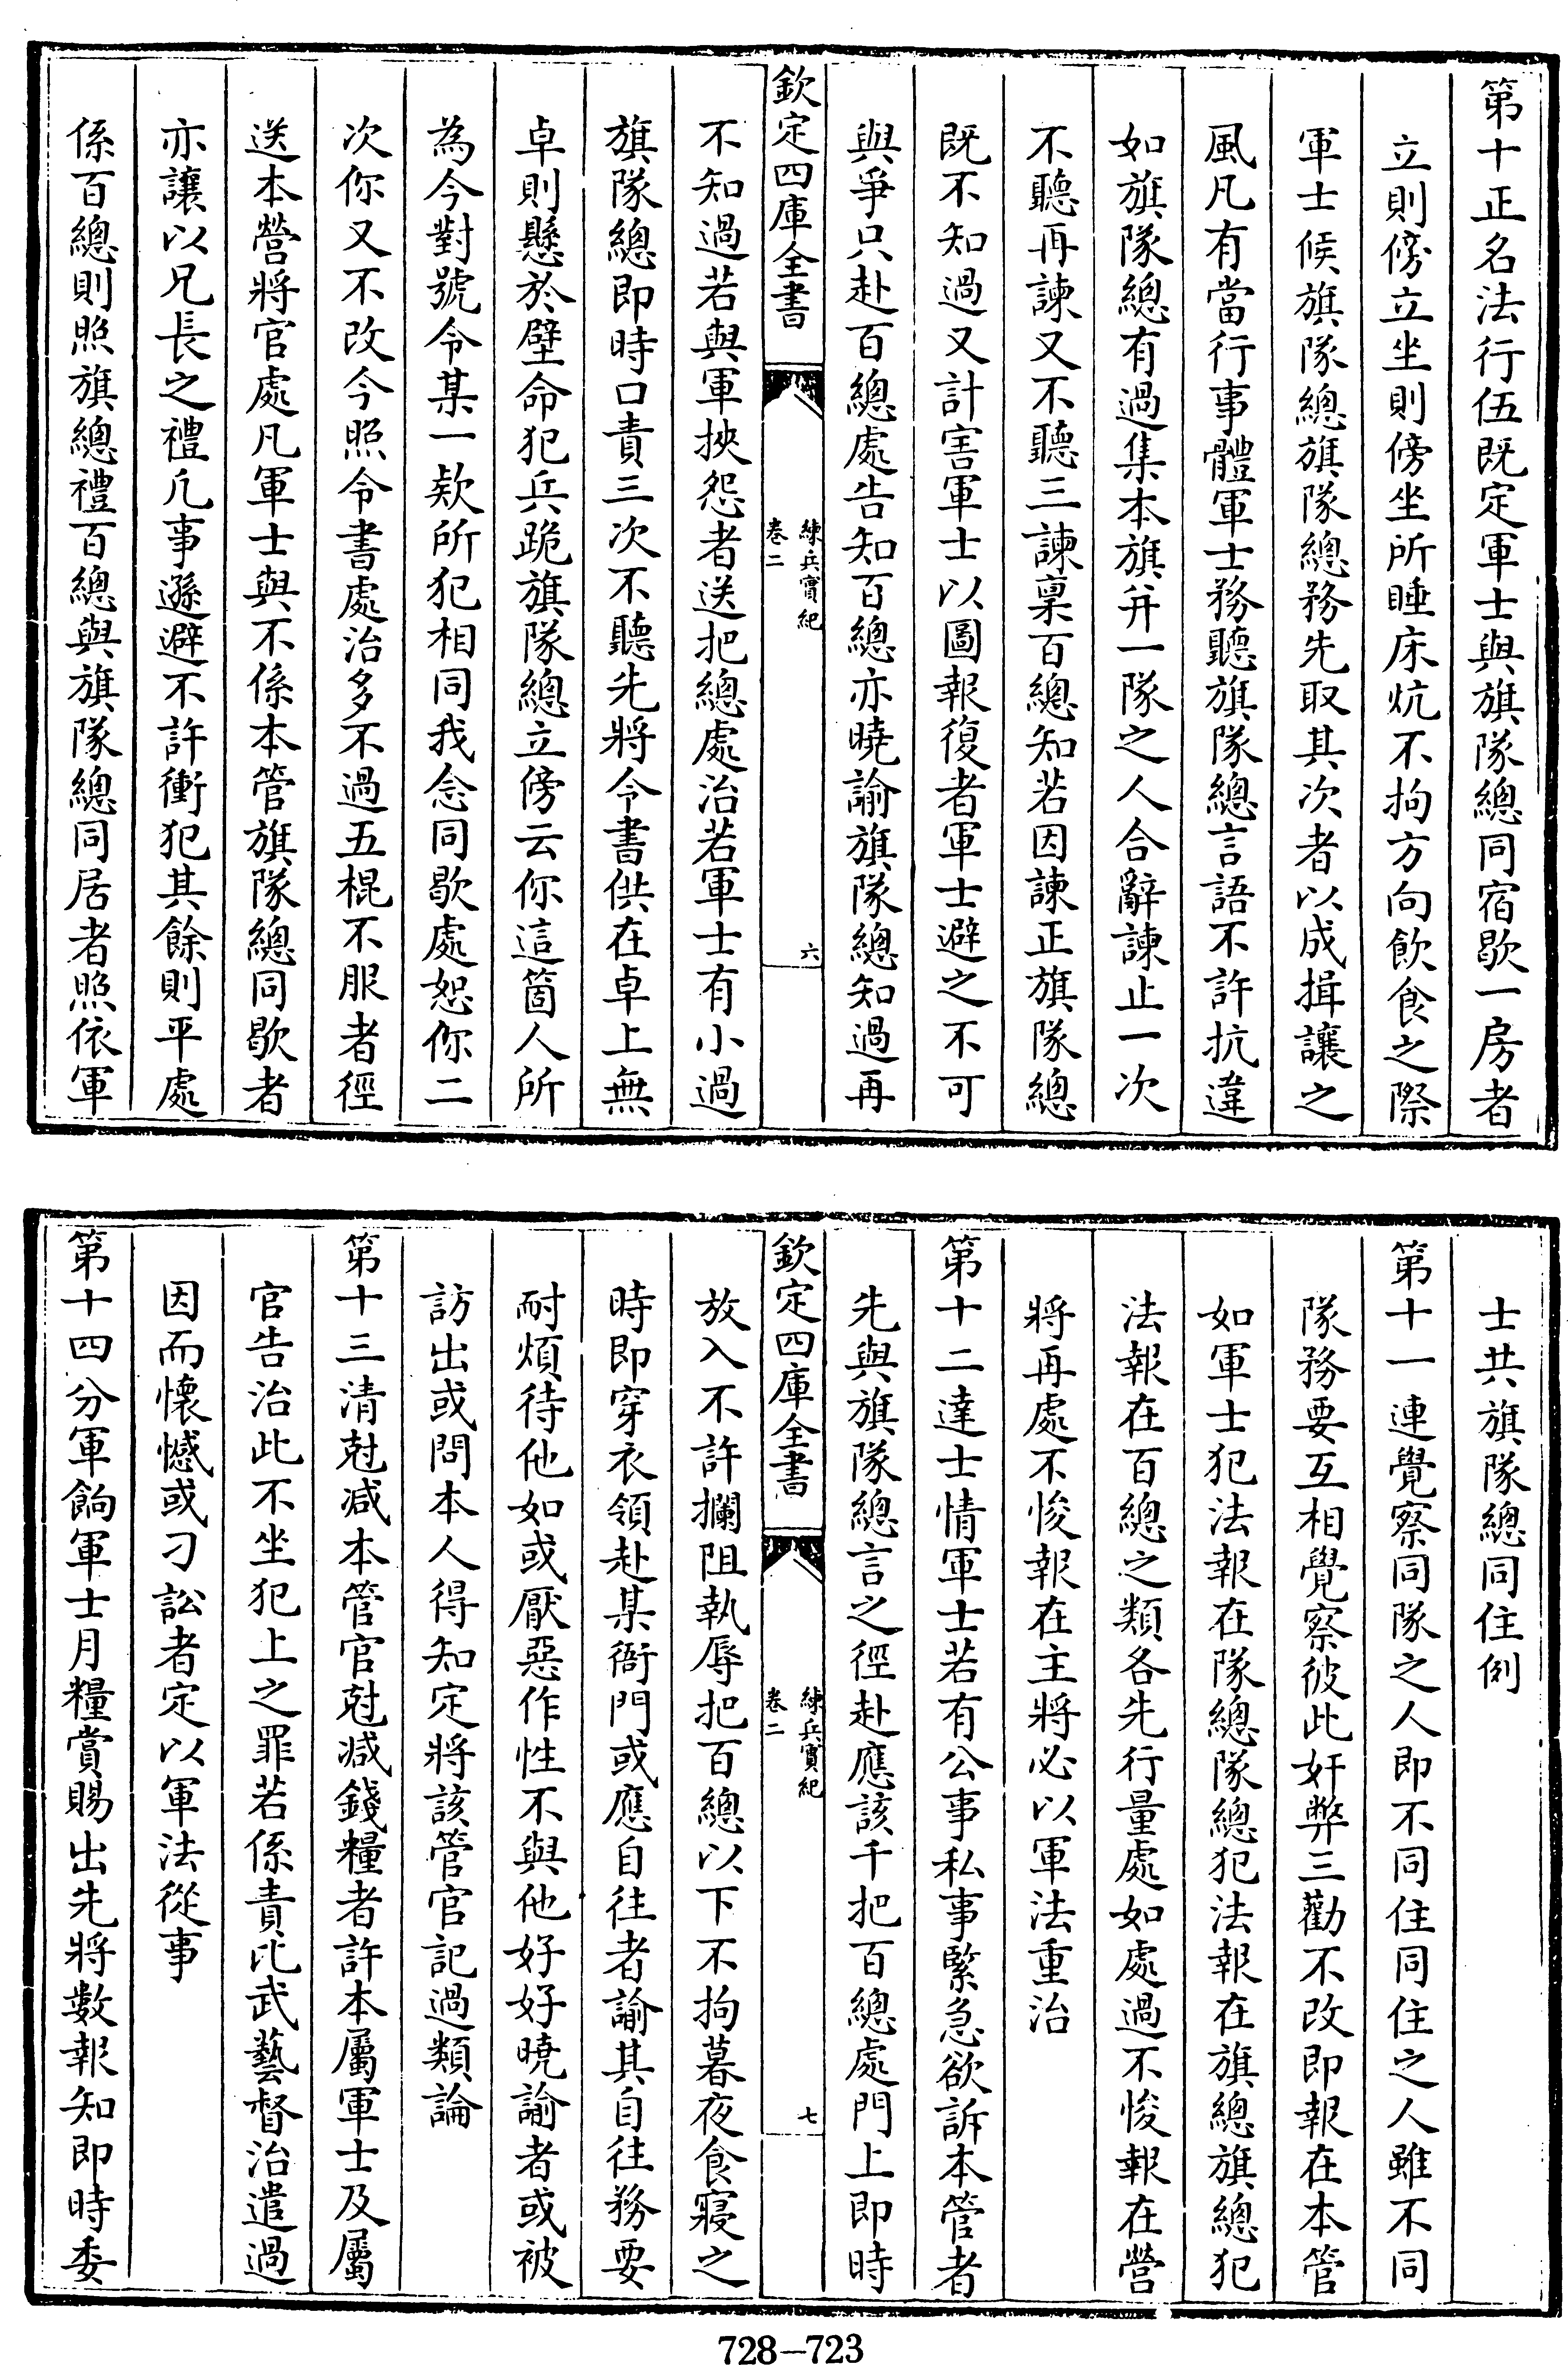 第十正名法行伍既定軍士與旗隊總同宿歇一房者
立則傍立坐則傍坐所睡床炕不拘方向飲食之際
軍士候旗隊總旗隊總務先取其次者以成揖讓之
風凡有當行事體軍士務聽旗隊總言語不許抗違
如旗隊總有過集本旗并一隊之人合辭諫止一次
不聽再諫又不聽三諫稟百總知若因諫正旗隊總
既不知過又計害軍士以圖報復者軍士避之不可
與爭只赴百總處告知百總亦曉諭旗隊總知過再
欽定四庫全書
練兵實紀
卷二
六
不知過若與軍挾怨者送把總處治若軍士有小過
旗隊總即時口責三次不聽先將令書供在卓上無
卓則懸於壁命犯兵跪旗隊總立傍云你這箇人所
為今對號令某一款所犯相同我念同歇處恕你二
次你又不改今照令書處治多不過五棍不服者徑
送本營將官處凡軍士與不係本管旗隊總同歇者
亦讓以兄長之禮凢事遜避不許衝犯其餘則平處
係百總則照旗總禮百總與旗隊總同居者照依軍
士共旗隊總同住例
第十一連覺察同隊之人即不同住同住之人雖不同
隊務要互相覺察彼此奸弊三勸不改即報在本管
如軍士犯法報在隊總隊總犯法報在旗總旗總犯
法報在百總之類各先行量處如處過不悛報在營
將再處不悛報在主將必以軍法重治
第十二達士情軍士若有公事私事緊急欲訴本管者
先與旗隊總言之徑赴應該千把百總處門上即時
欽定四庫全書
練兵實紀
卷二
七
放入不許攔阻執辱把百總以下不拘暮夜食寢之
時即穿衣領赴某衙門或應自往者諭其自往務要
耐煩待他如或厭惡作性不與他好好曉諭者或被
訪出或問本人得知定將該管官記過類論
第十三清尅減本管官尅減錢糧者許本屬軍士及屬
官告治此不坐犯上之罪若係責比武藝督治遣過
因而懷憾或刁訟者定以軍法從事
第十四分軍餉軍士月糧賞賜出先將數報知即時委
728—723